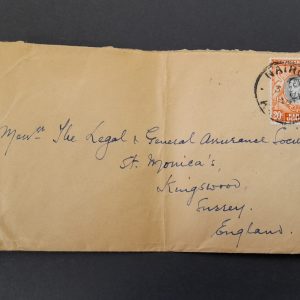 NAIR
20
Messrs The Legal & General Assurance Socie
St. Monica's,
Kingswood,
Surrey.
England.